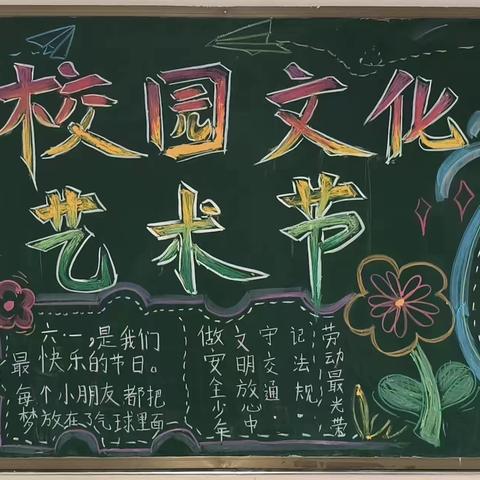 校园文化
艺术节
六·一,是我们
最快乐的节日。
每个小朋友都把
梦放在了气球里面
做安全少年
文明放心中
守交通
记法规
劳动最光荣